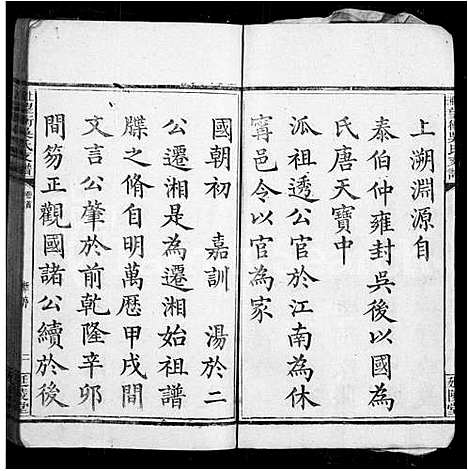 上溯淵源自
泰伯仲雍封吳後以國為
氏唐天寶中
派祖透公官於江南為休
甯邑令以官為家
國朝初　嘉訓　湯於二
公遷湘是為遷湘始祖譜
牒之脩自明萬歷甲戌間
文言公肇於前乾隆辛卯
間笏正觀國諸公續於後